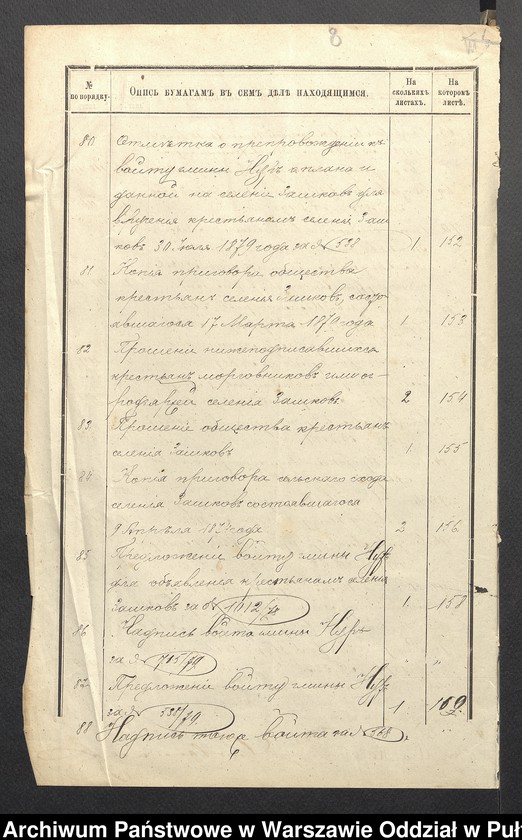 8
№ по порядку.
Опись бумагамъ въ семъ дѣлѣ находящимся.
На сколькихъ листахъ.
На которомъ листѣ.
80 Отмѣтка о препровожденіи къ
войту гмины Нуръ плана и
данной на селеніе Зашковъ для
врученія крестьянамъ селенія Заш
ковъ 30 Іюля 1879 года за № 538 1 152
81 Копія приговора общества
крестьянъ селенія Зашковъ, состо
явшагося 17 Марта 1879 года 1 153
82 Прошеніе нижеподписавшихся
крестьянъ морговниковъ и
селенія Зашковъ 2 154
83 Прошеніе общества крестьянъ
селенія Зашковъ 1 155
84 Копія приговора сельскаго схода
селенія Зашковъ состоявшагося
9 Апрѣля 187 года 2 156
85 Предложеніе войту гмины Нуръ
для объявленія крестьянамъ селенія
Зашковъ за № 1012/ 1 158
86 Надпись войта гмины Нуръ
за № 785/79 "
87 Предложеніе войту гмины Нуръ
за № 538/79 1 159
88 Надпись тогоже войта за № 568 "
Archiwum Państwowe w Warszawie Oddział w Puł